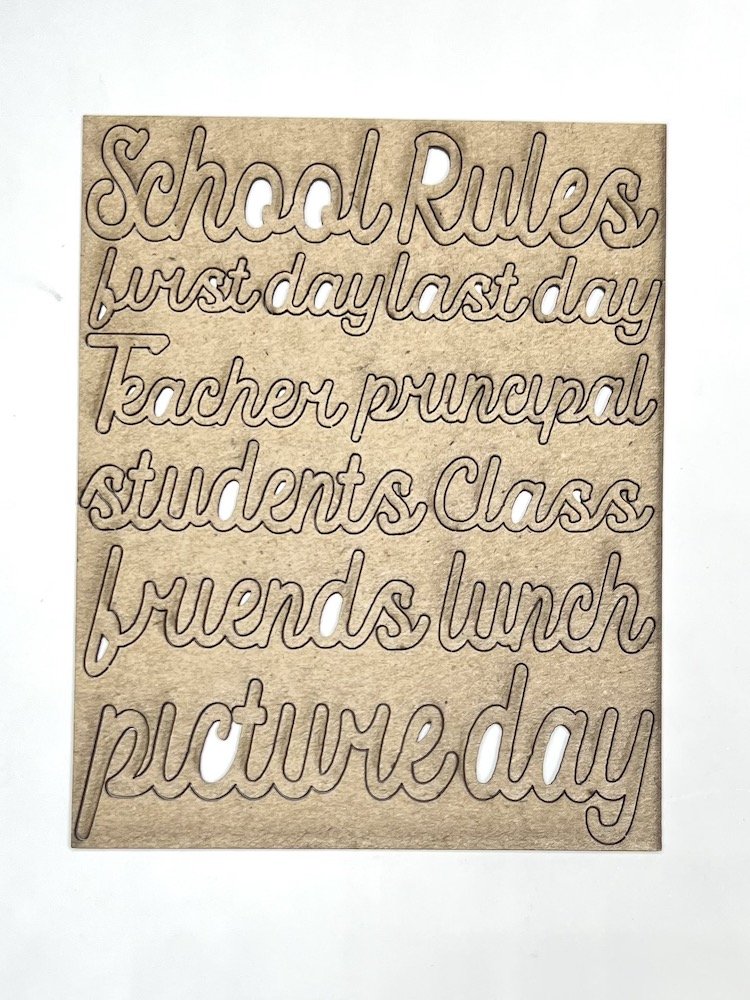 School Rules
first day last day
Teacher principal
students Class
friends lunch
picture day